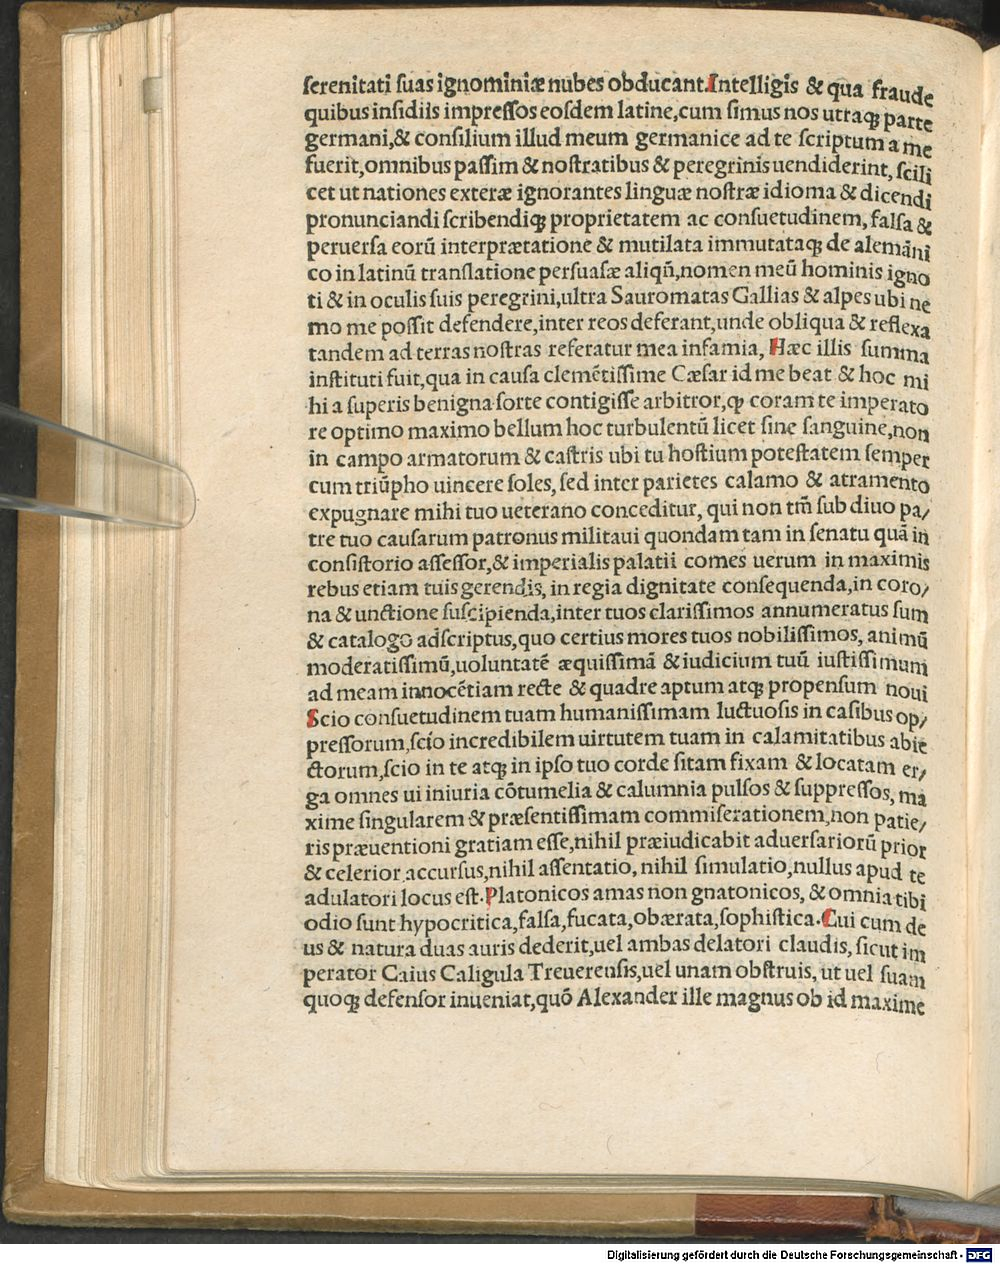 ſerenitati ſuas ignominiæ nubes obducant. Intelligis & qua fraude
quibus inſidiis impreſſos eoſdem latine, cum ſimus nos utraqꝫ parte
germani, & conſilium illud meum germanice ad te ſcriptum a me
fuerit, omnibus paſſim & noſtratibus & peregrinis uendiderint, ſcili
cet ut nationes exteræ ignorantes linguæ noſtræ idioma & dicendi
pronunciandi ſcribendiqꝫ proprietatem ac conſuetudinem, falſa &
peruerſa eorū interprætatione & mutilata immutataqꝫ de alemāni
co in latinū tranſlatione perſuaſæ aliqñ, nomen meū hominis igno
ti & in oculis ſuis peregrini, ultra Sauromatas Gallias & alpes ubi ne
mo me poſſit defendere, inter reos deferant, unde obliqua & reflexa
tandem ad terras noſtras referatur mea infamia, Hæc illis ſumma
inſtituti fuit, qua in cauſa clemētiſſime Cæſar id me beat & hoc mi
hi a ſuperis benigna ſorte contigiſſe arbitror, ꝙ coram te imperato
re optimo maximo bellum hoc turbulentū licet ſine ſanguine, non
in campo armatorum & caſtris ubi tu hoſtium poteſtatem ſemper
cum triūpho uincere ſoles, ſed inter parietes calamo & atramento
expugnare mihi tuo ueterano conceditur, qui non tm̄ ſub diuo pa/
tre tuo cauſarum patronus militaui quondam tam in ſenatu quā in
conſiſtorio aſſeſſor, & imperialis palatii comes uerum in maximis
rebus etiam tuis gerendis, in regia dignitate conſequenda, in coro/
na & unctione ſuſcipienda, inter tuos clariſſimos annumeratus ſum
& catalogo adſcriptus, quo certius mores tuos nobiliſſimos, animū
moderatiſſimū, uoluntatē æquiſſimā & iudicium tuū iuſtiſſimum
ad meam innocētiam recte & quadre aptum atqꝫ propenſum noui
Scio conſuetudinem tuam humaniſſimam luctuoſis in caſibus op/
preſſorum, ſcio incredibilem uirtutem tuam in calamitatibus abie
ctorum, ſcio in te atqꝫ in ipſo tuo corde ſitam fixam & locatam er/
ga omnes ui iniuria cōtumelia & calumnia pulſos & ſuppreſſos, ma
xime ſingularem & præſentiſſimam commiſerationem, non patie/
ris præuentioni gratiam eſſe, nihil præiudicabit aduerſariorū prior
& celerior accurſus, nihil aſſentatio, nihil ſimulatio, nullus apud te
adulatori locus eſt. Platonicos amas non gnatonicos, & omnia tibi
odio ſunt hypocritica, falſa, fucata, obærata, ſophiſtica. Cui cum de
us & natura duas auris dederit, uel ambas delatori claudis, ſicut im
perator Caius Caligula Treuerenſis, uel unam obſtruis, ut uel ſuam
quoqꝫ defenſor inueniat, quō Alexander ille magnus ob id maxime
Digitalisierung gefördert durch die Deutsche Forschungsgemeinschaft - DFG